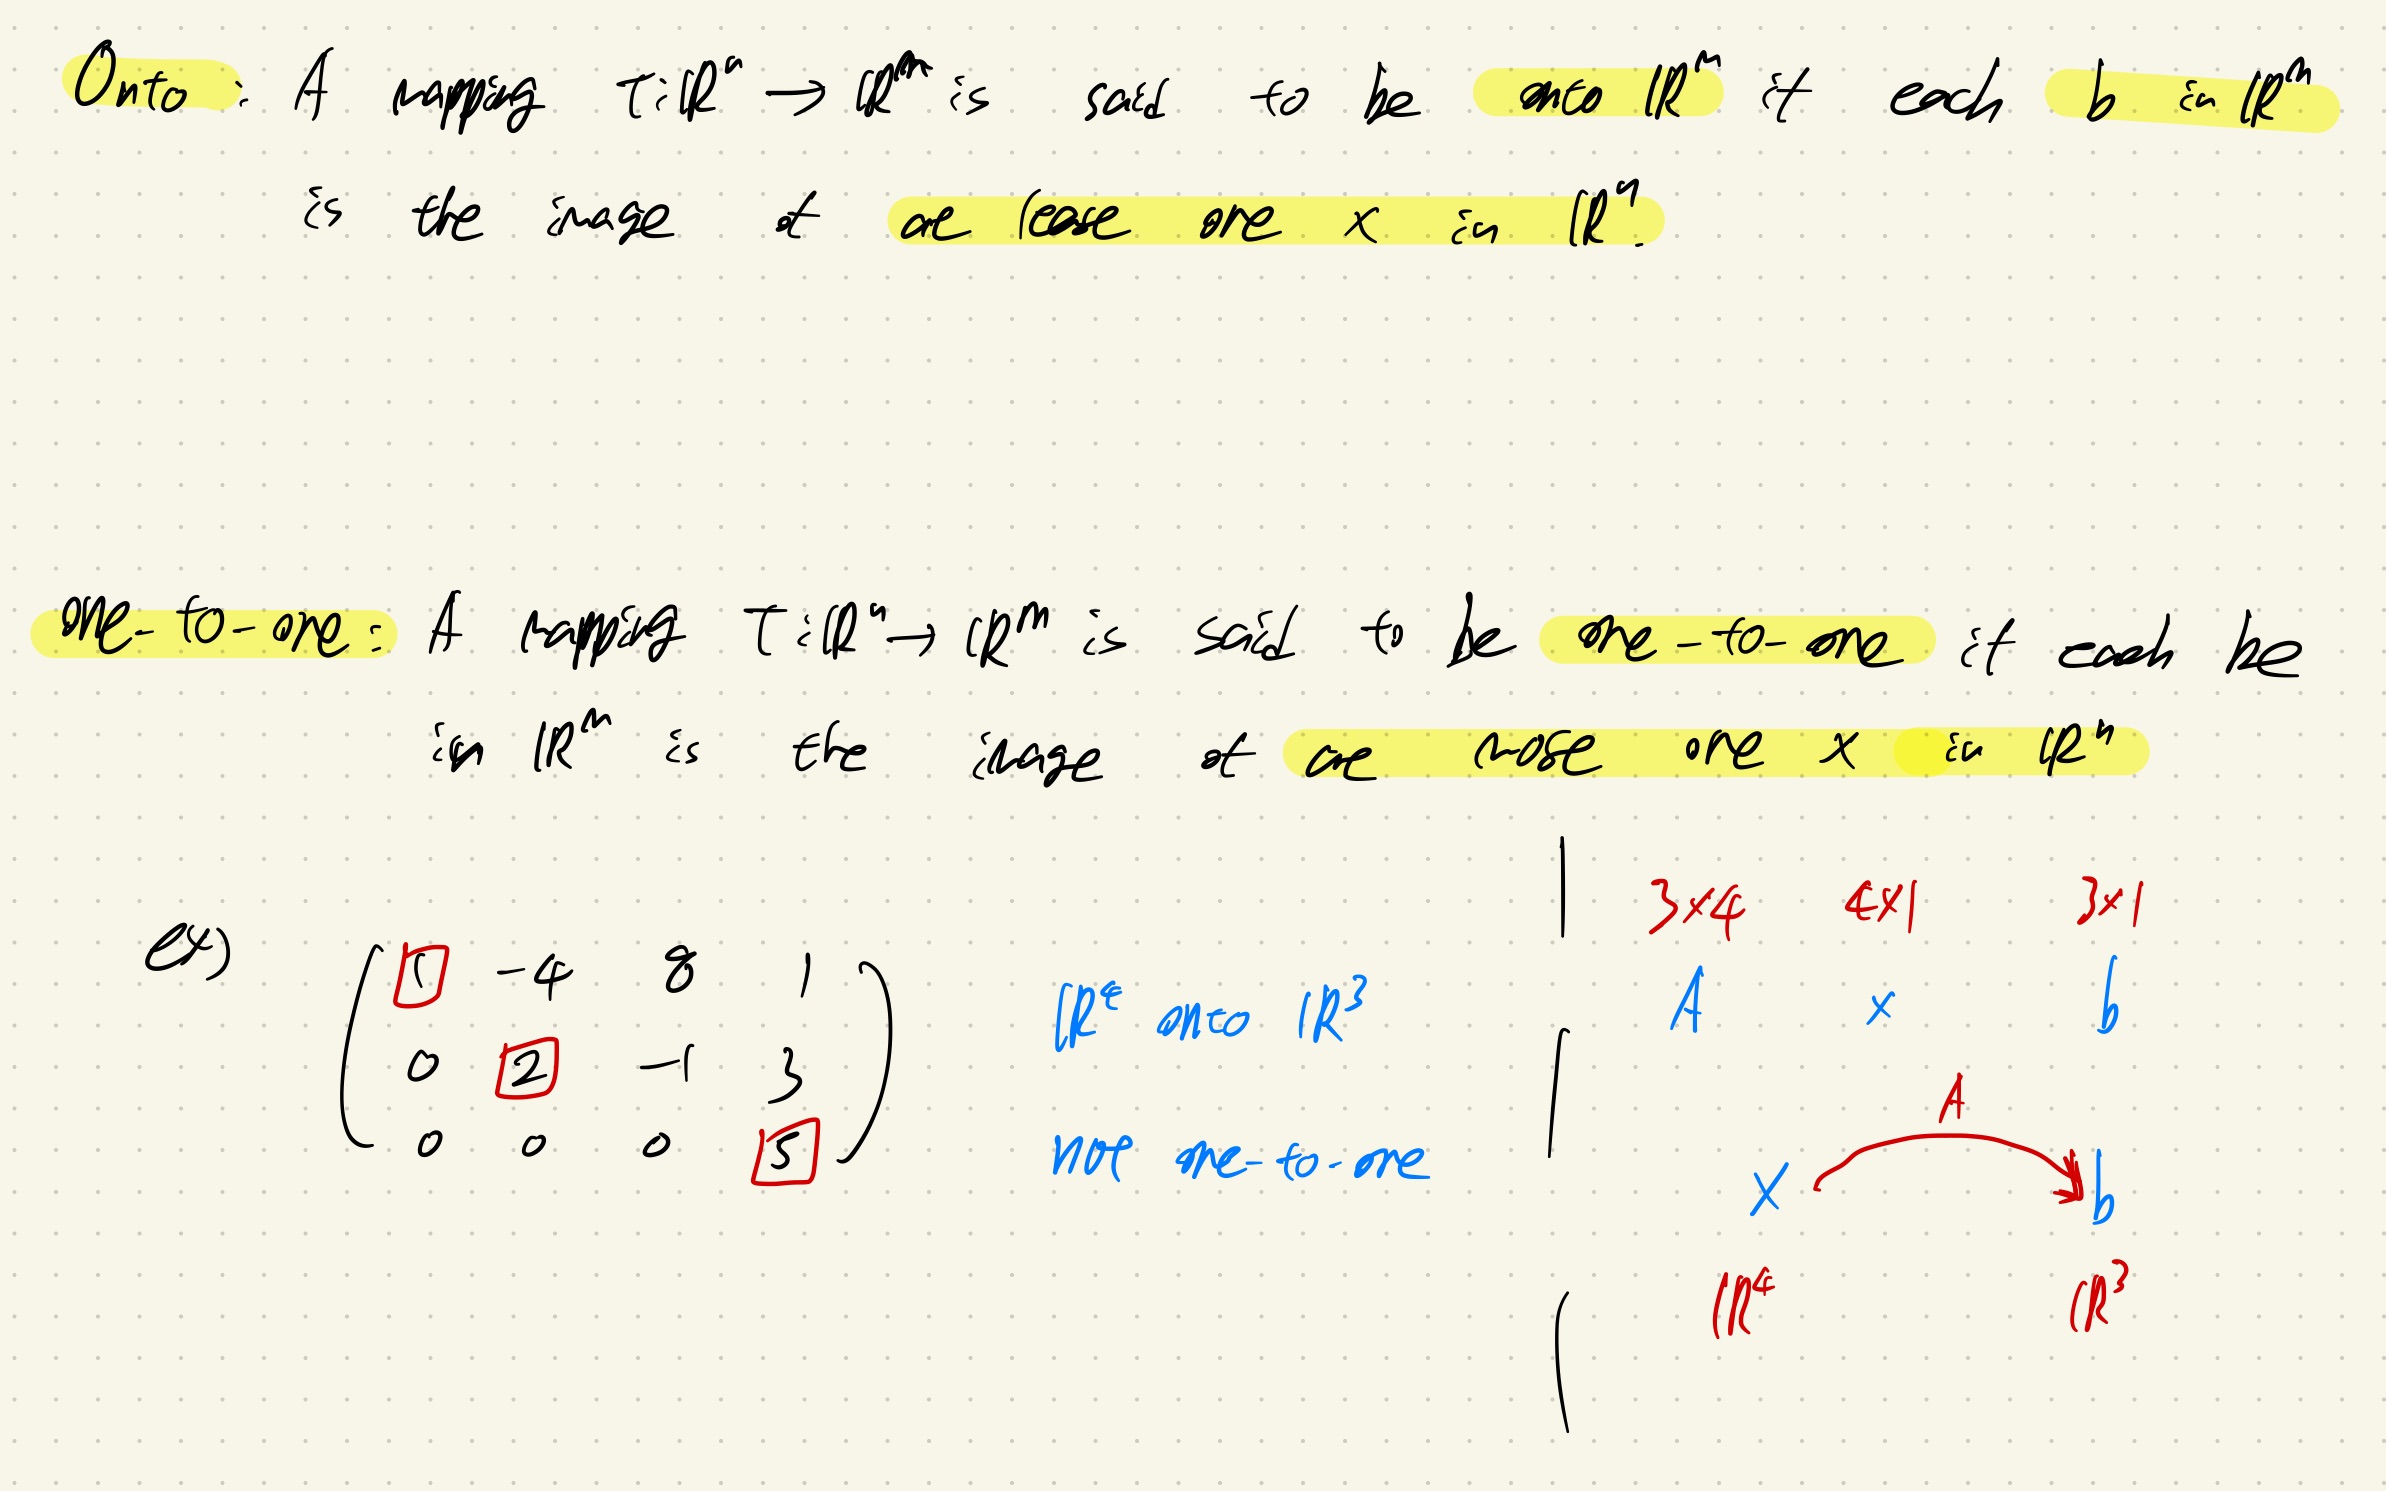 Onto: A mapping T: ℝⁿ → ℝᵐ is said to be onto ℝᵐ if each b in ℝᵐ
is the image of at least one x in ℝⁿ.
one-to-one: A mapping T: ℝⁿ → ℝᵐ is said to be one-to-one if each be
in ℝᵐ is the image of at most one x in ℝⁿ
ex)
1 -4 8 1
0 2 -1 3
0 0 0 5
ℝ⁴ onto ℝ³
not one-to-one
3×4 4×1 3×1
A x b
A
x b
ℝ⁴ ℝ³